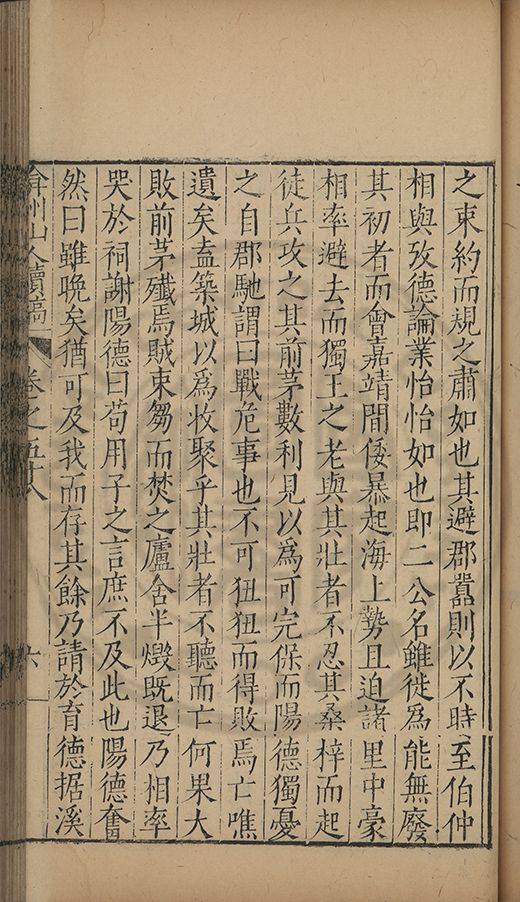 之束約而規之肅如也其避郡囂則以不時至伯仲
相與攷德論業怡怡如也即二公名雖徙爲能無廢
其初者而會嘉靖間倭暴起海上勢且迫諸里中豪
相率避去而獨王之老與其壯者不忍其桑梓而起
徒兵攻之其前茅數利見以爲可完保而陽德獨憂
之自郡馳謂曰戰危事也不可狃狃而得敗焉亡噍
遺矣盍築城以爲收聚乎其壯者不聽而亡何果大
敗前茅殲焉賊束芻而焚之廬舍半燬既退乃相率
哭於祠謝陽德曰苟用子之言庶不及此也陽德奮
然曰雖晚矣猶可及我而存其餘乃請於育德据溪
弇州山人續稿 卷之五十八 六